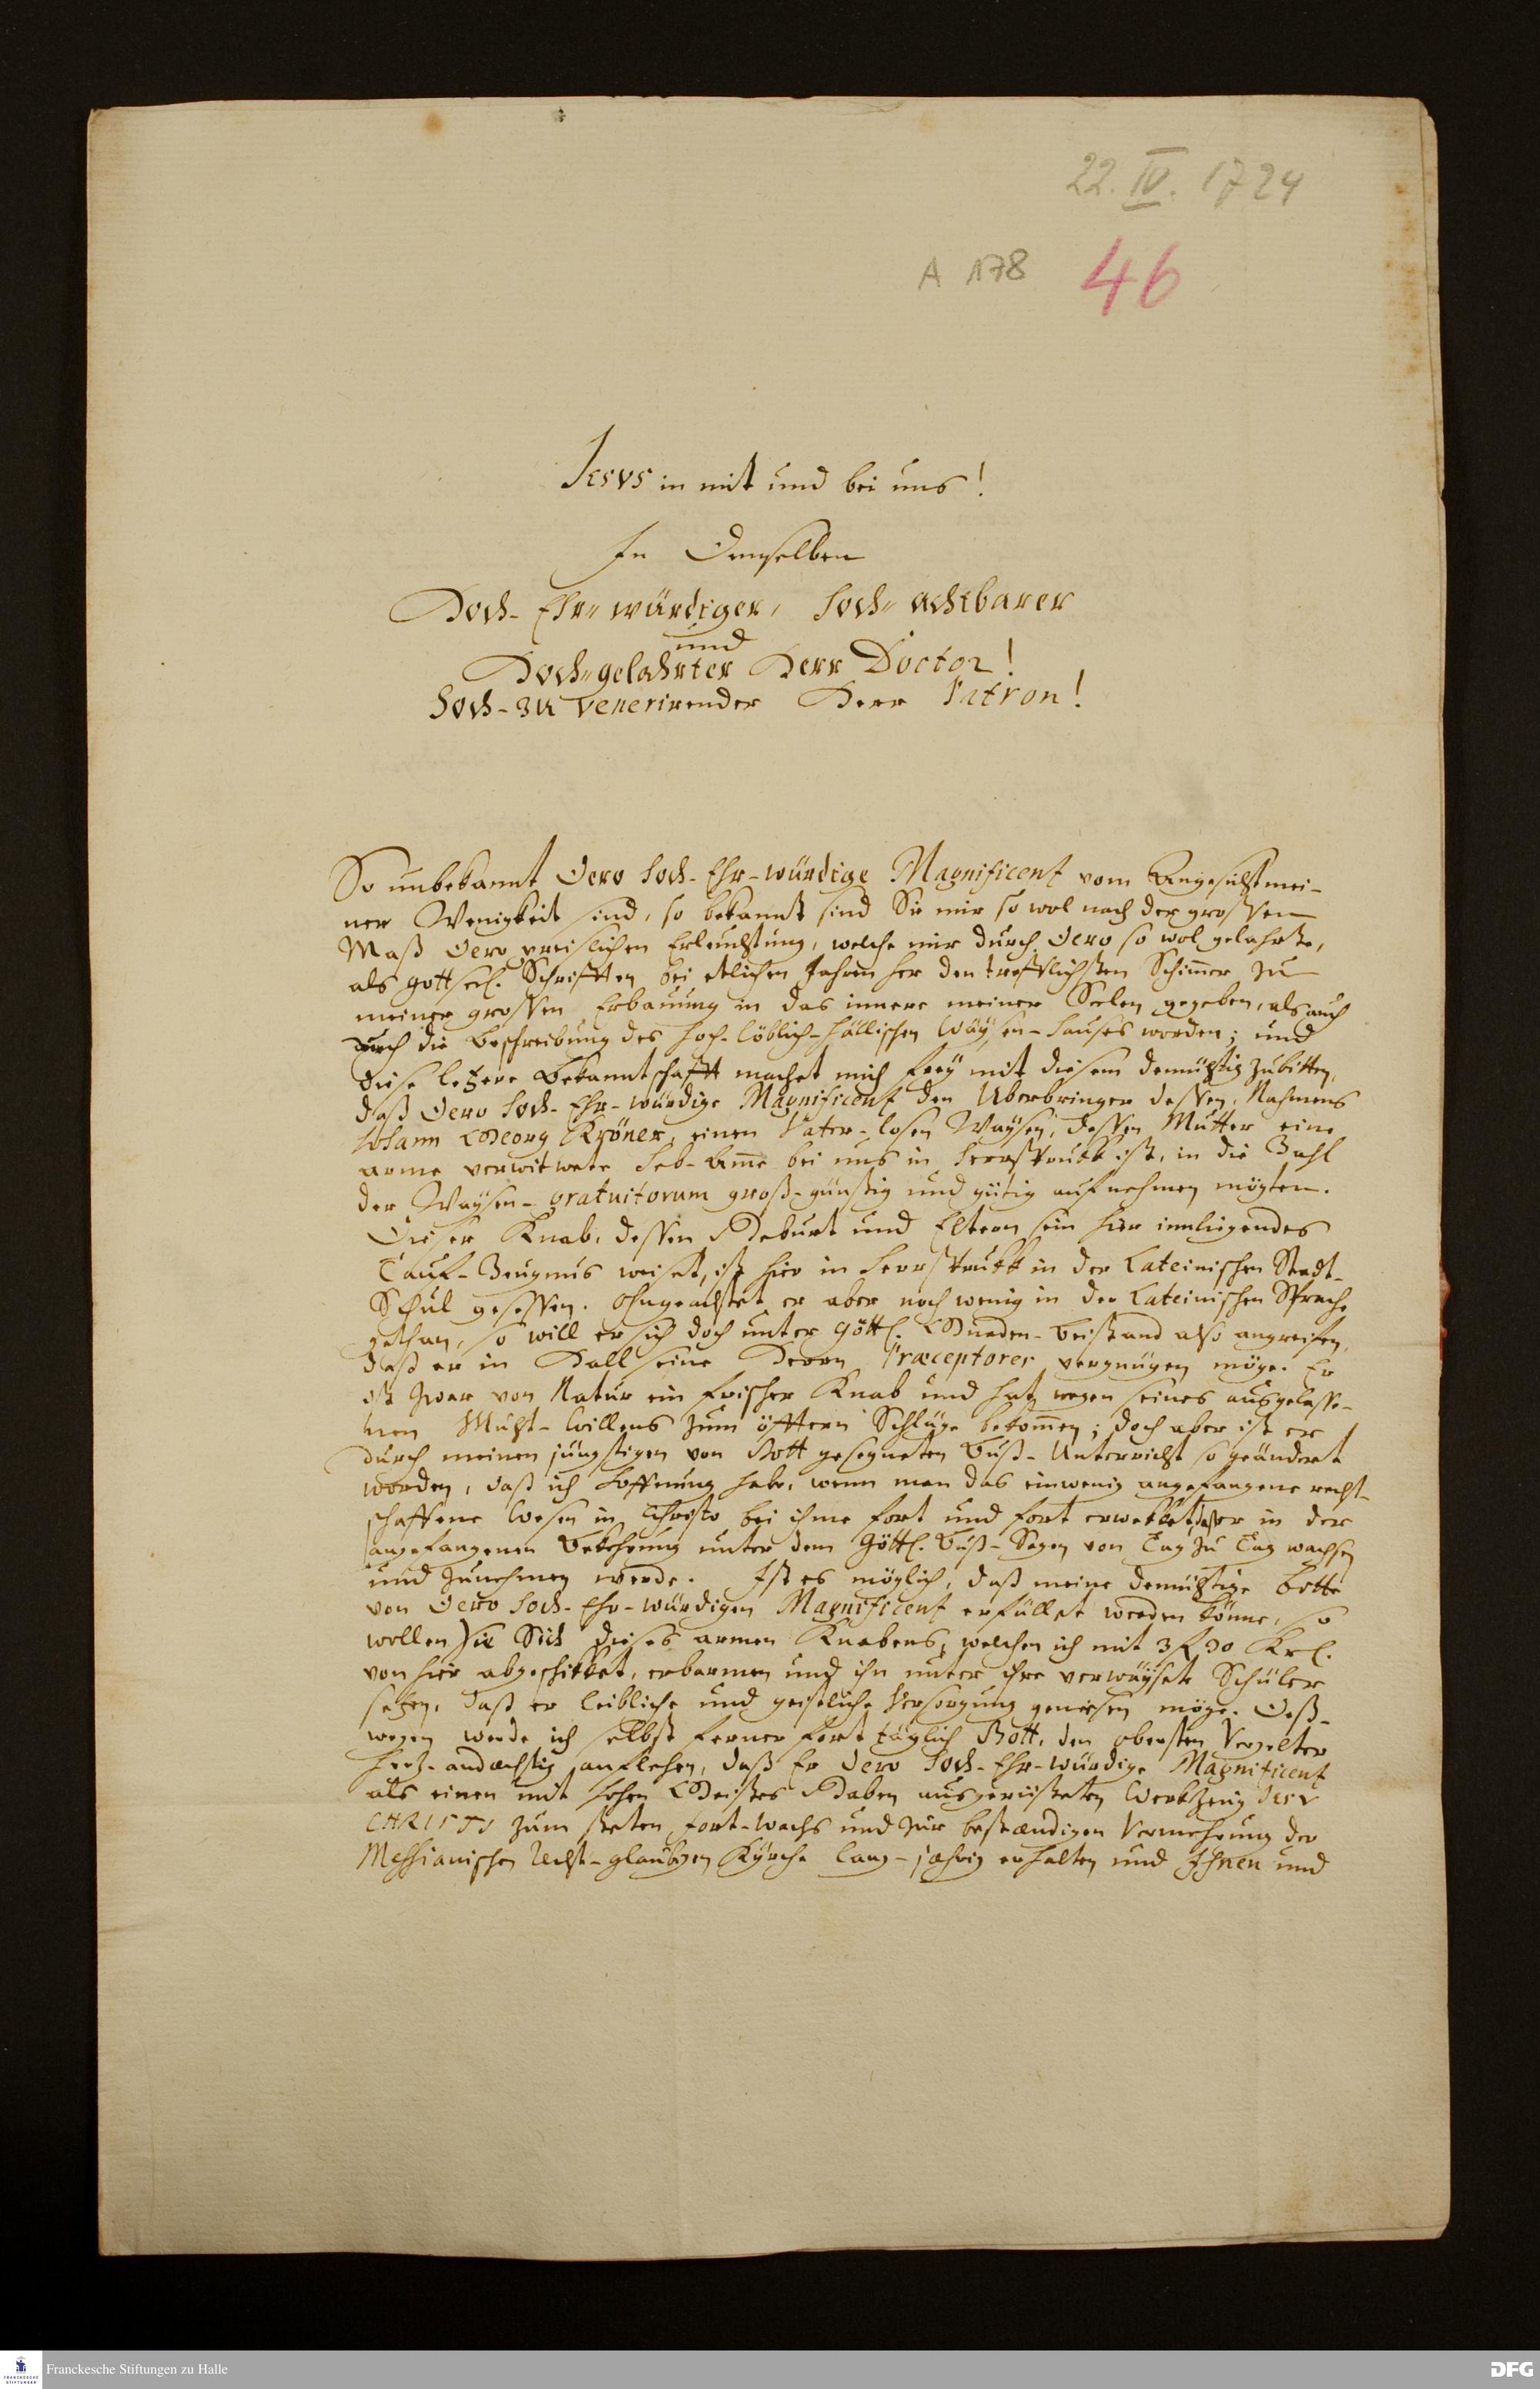 22. IV. 1724
A 178 46
Jesus in mit und bei uns!
In Demselben
Hoch-Ehr-würdiger, Hoch-achtbarer
und
Hoch-gelahrter Herr Doctor!
Hoch-zu venerirender Herr Patron!
So unbekannt Dero Hoch-Ehr-würdige Magnificenz vom Angesicht mei-
ner Wenigkeit sind, so bekannt sind Sie mir so wol nach der grossen
Maß Dero preislichen Erleuchtung, welche mir durch Dero so wol gelahrte,
als gottsel. Schrifften bei etlichen Jahren her den trefflichsten Schimer zu
meiner grossen Erbauung in das innere meiner Seelen gegeben, als auch
durch die Beschreibung des hoch-löblich-hällischen Wäysen-Hauses worden; und
diese letzere Bekanntschafft machet mich frey mit diesem demühtig zu bitten,
daß Dero Hoch-Ehr-würdige Magnificenz den Uberbringer dessen, Nahmens
Johann Georg Kröner, einen Vater-losen Waysen, dessen Mutter eine
arme verwitwete Heb-Amme bei uns in ist, in die Zahl
der Waysen-gratuitorum groß-günstig und gütig aufnehmen mögten.
Dieser Knab, dessen Geburt und Eltern sein hier innliegendes
Tauf-Zeugnüs weiset, ist hier in in der Lateinischen Stadt-
Schul gesessen. Ohngeachtet er aber noch wenig in der Lateinischen Sprache
gethan, so will er sich doch unter göttl. Gnaden-Beistand also angreifen,
daß er in Hall seine Herrn Præceptores vergnügen möge. Er
ist zwar von Natur ein frischer Knab und hat wegen seines ausgelasse-
nen Muht-Willens zum öfftern Schläge bekommen; doch aber ist er
durch meinen jüngstigen von Gott gesegneten Buß-Unterricht so geändert
worden, daß ich Hoffnung habe, wenn man das einwenig angefangene recht-
schaffene Wesen in Christo bei ihme fort und fort erwekket, daß er in der
angefangenen Bekehrung unter dem göttl. Buß-Segen von Tag zu Tag wachsen
und zunehmen werde. Ist es möglich, daß meine demühtige Bitte
von Dero Hoch-Ehr-würdigen Magnificenz erfüllet werden könne, so
wollen Sie Sich dieses armen Knabens, welchen ich mit 3 f. 30 Krl.
von hier abgeschikket, erbarmen und ihn unter ihre verwäysete Schüler
setzen, daß er leibliche und geistliche Versorgung geniesen möge. Deß-
wegen werde ich selbst ferner fort täglich Gott, den obersten Vergelter
hertz-andächtig anflehen, daß Er Dero Hoch-Ehr-würdige Magnificenz
als einen mit hohen Geistes Gaben ausgerüsteten Werkzeug Jesu
CHRISTI zum steten Fort-wachs und zur bestændigen Vermehrung der
Messianischen Recht-glaubigen Kyrche lang-jæhrig erhalten und Ihnen und
Franckesche Stiftungen zu Halle
DFG